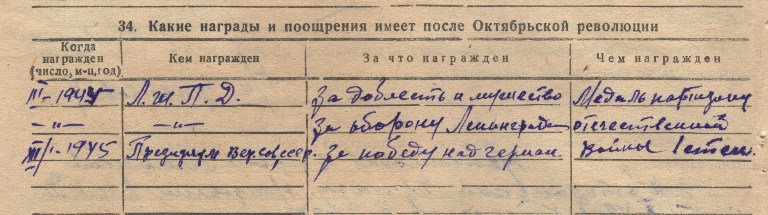 34. Какие награды и поощрения имеет после Октябрьской революции
Когда награжден (число, м-ц, год) Кем награжден За что награжден Чем награжден
III-1944 Л. Ш. П. Д. За доблесть и мужество Медаль партизану
—"— —"— За оборону Ленинграда отечественной
XII-1945 Президиум Верховн. За победу над герман. войны I степ.